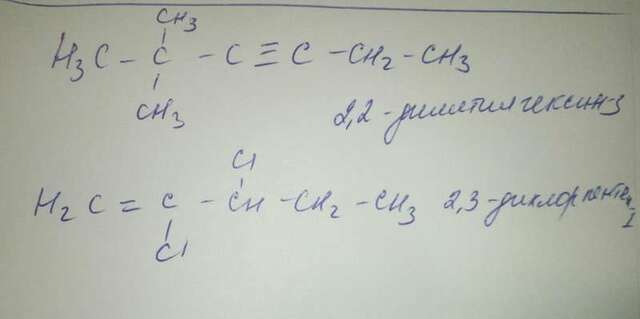 CH3
H3C - C - C ≡ C - CH2 - CH3
CH3
2,2-диметилгексин-3
Cl
H2C = C - CH - CH2 - CH3 2,3-дихлорпентен-1
Cl